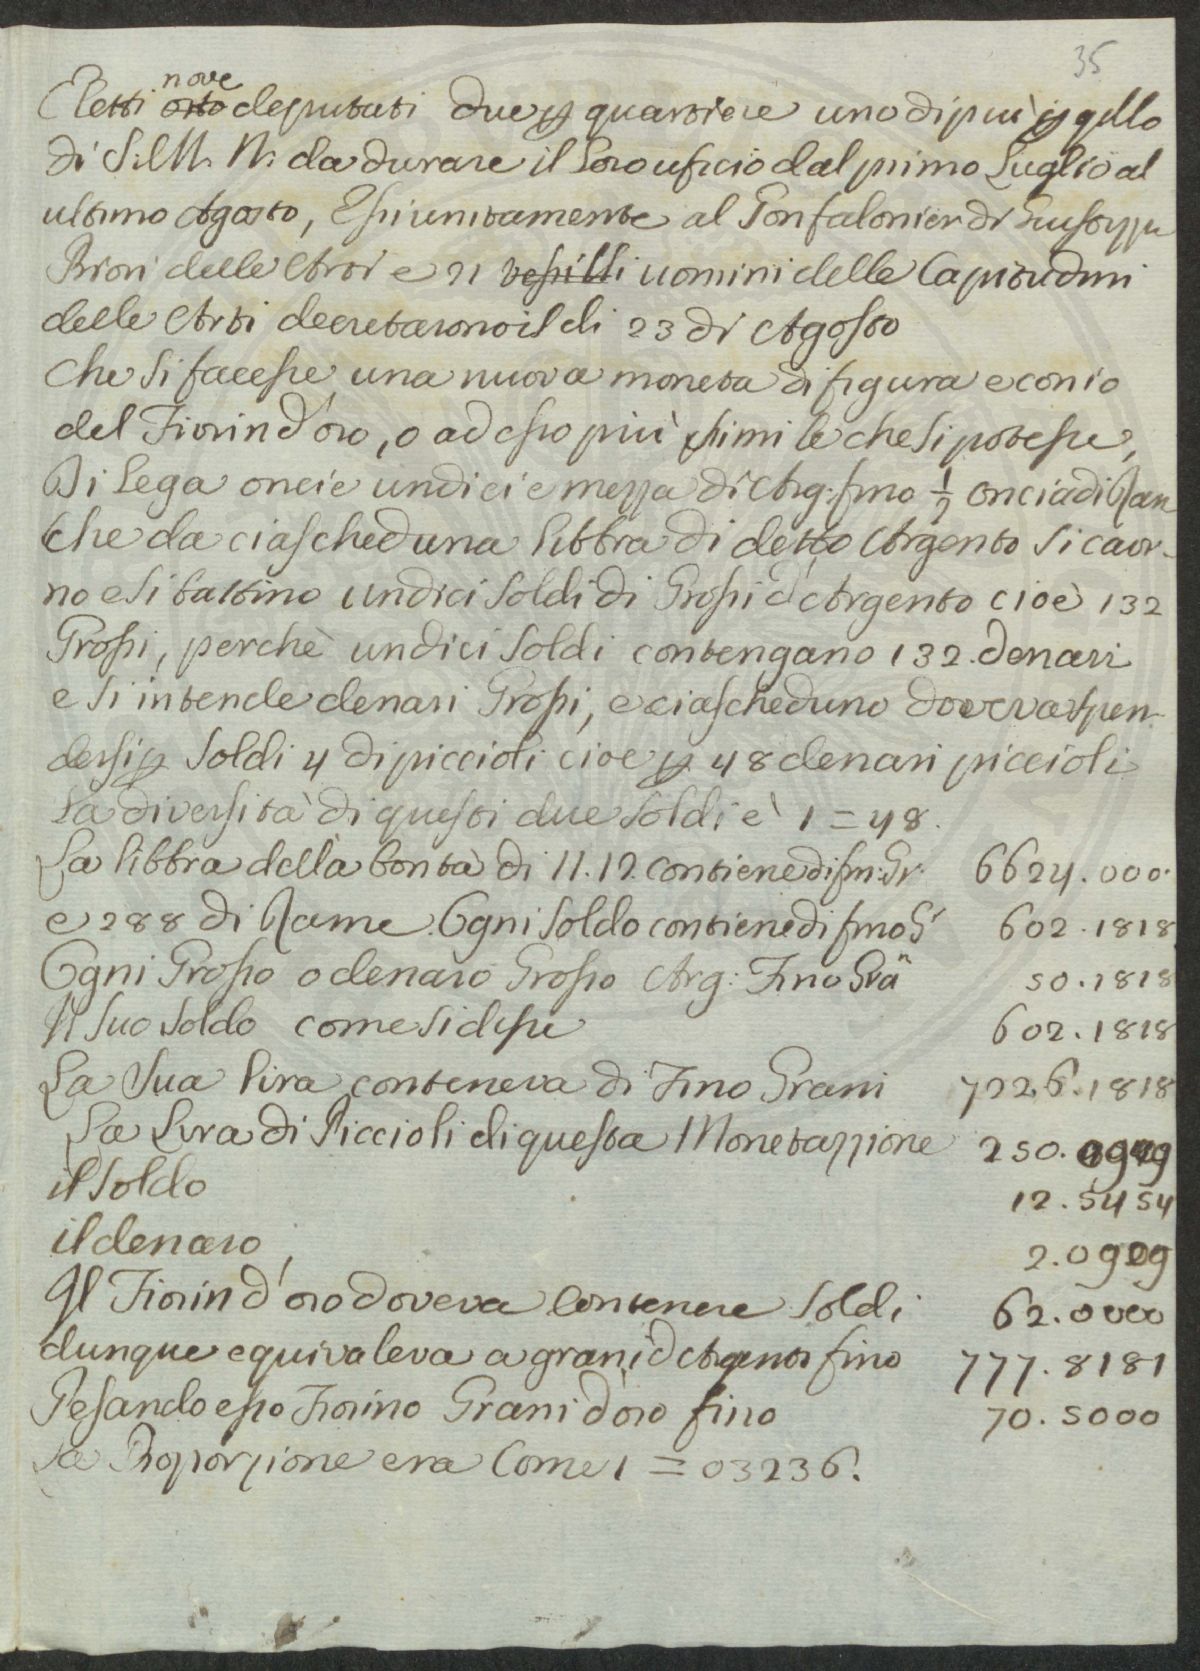 35
Eletti nove otto deputati due p quartiere uno di più p qllo
di S. M. N. da durare il loro uficio dal primo Luglio al
ultimo Agosto, Essi unitamente al Gonfalonier di
Priori delle Arti e 21 vessilli uomini delle Capitudini
delle Arti decretarono il di 23 di Agosto
che si facesse una nuova moneta di figura e conio
del Fiorin d'oro, o ad esso più simile che si potesse,
Di Lega oncie undici e mezza di Arg: fino ½ oncia di Ram
Che da ciascheduna libbra di detto Argento si cavi-
no e si battino undici soldi di Grossi d'Argento cioè 132
Grossi, perchè undici soldi contengano 132. denari
e si intende denari Grossi, e ciascheduno doveva spen-
dersi p soldi 4 di piccioli cioe p 48 denari piccioli
La diversità di questi due soldi è 1 = 48.
La libbra della bontà di 11.12. contiene di fin: Gr: 6624.000.
e 288 di Rame. Ogni soldo contiene di fino G' 602.1818
Ogni Grosso o denaro Grosso Arg: Fino Gra 50.1818
Il suo soldo come si disse 602.1818
La sua lira conteneva di Fino Grani 7226.1818
La Lira di Piccioli di questa Monetazzione 250.9090
il soldo 12.5454
il denaro, 2.0909
Il Fiorin d'oro doveva contenere soldi 62.0000
dunque equivaleva a grani d'Argento fino 777.8181
Pesando esso Fiorino Grani d'oro fino 70.5000
La Proporzione era Come 1 = 03236.